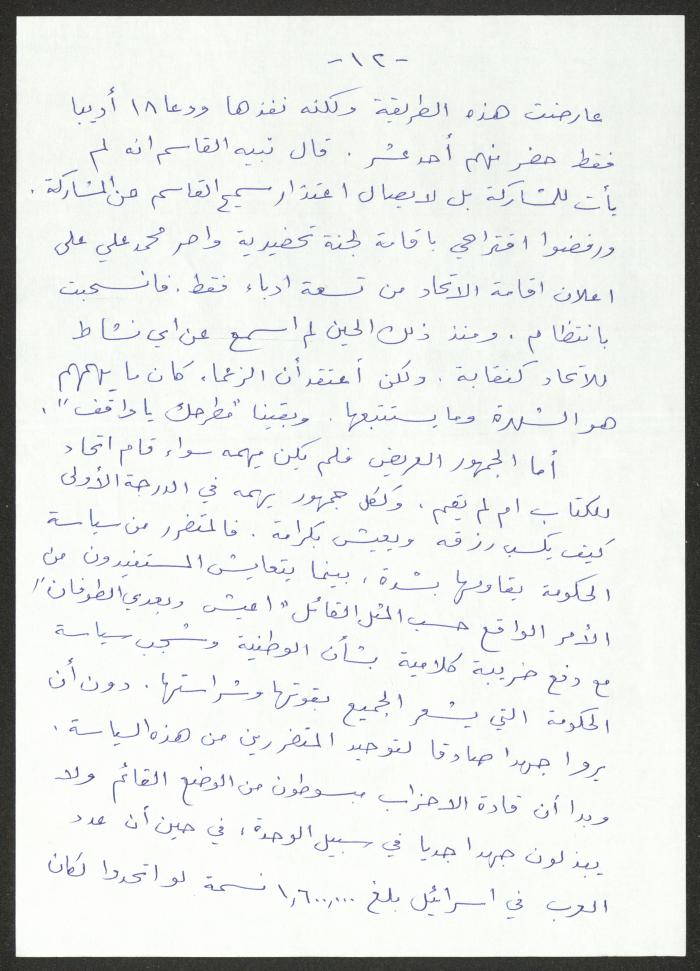 -١٢-
عارضت هذه الطريقة ولكنه نفذها ودعا ١٨ أديبا
فقط حضر منهم أحد عشر . قال نبيه القاسم انه لم
يأت للمشاركة بل لايصال اعتذار سميح القاسم عن المشاركة .
ورفضوا اقتراحي باقامة لجنة تحضيرية واصر محمد علي على
اعلان اقامة الاتحاد من تسعة ادباء فقط . فانسحبت
بانتظام . ومنذ ذلك الحين لم اسمع عن اي نشاط
للاتحاد كنقابة . ولكن أعتقد أن الزعماء كان ما يهمهم
هو الشهرة وما يستتبعها . وبقينا "مطرحك يا واقف" .
أما الجمهور العريض فلم يكن يهمه سواء قام اتحاد
للكتاب ام لم يقم . وككل جمهور يهمه في الدرجة الأولى
كيف يكسب رزقه ويعيش بكرامة . فالمتضرر من سياسة
الحكومة يقاومها بشدة ، بينما يتعايش المستفيدون من
الأمر الواقع حسب المثل القائل "اعيش وبعدي الطوفان"
مع دفع ضريبة كلامية بشأن الوطنية وشجب سياسة
الحكومة التي يشعر الجميع بقوتها وشراستها . دون أن
يروا جهدا صادقا لتوحيد المتضررين من هذه السياسة .
وبدا أن قادة الاحزاب مبسوطون من الوضع القائم ولا
يبذلون جهدا جديا في سبيل الوحدة ، في حين أن عدد
العرب في اسرائيل بلغ ١٫٦٠٠٫٠٠٠ نسمة لو اتحدوا لكان